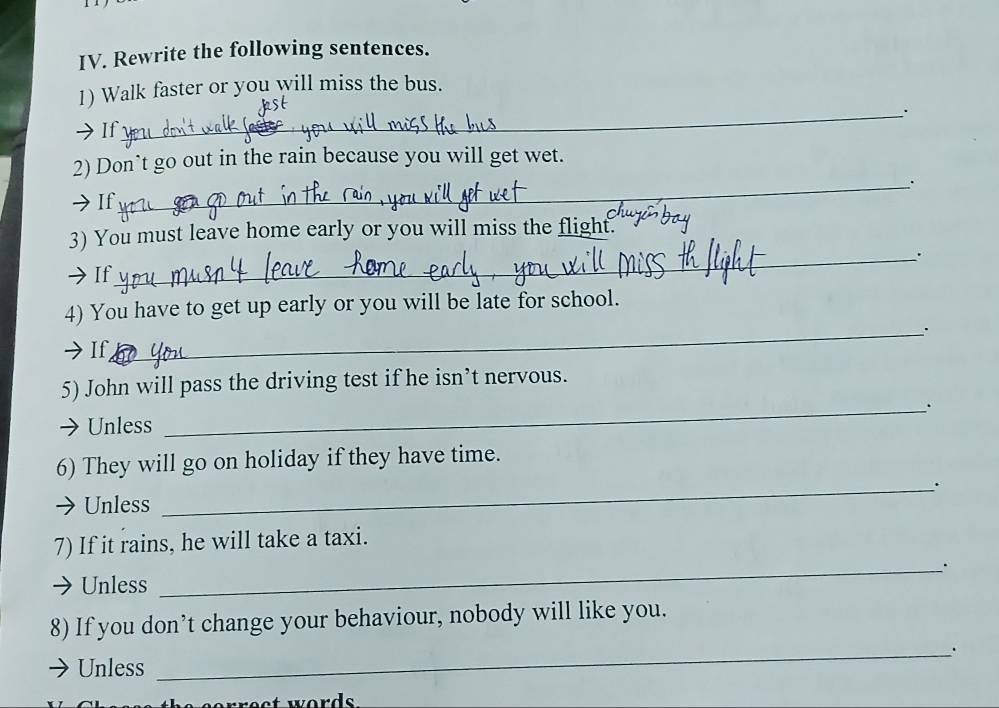 IV. Rewrite the following sentences.
1) Walk faster or you will miss the bus.
fast
→ If you don't walk, you will miss the bus.
2) Don't go out in the rain because you will get wet.
→ If you go out in the rain, you will get wet.
3) You must leave home early or you will miss the flight. chuyến bay
→ If you musn't leave home early, you will miss th flight.
4) You have to get up early or you will be late for school.
→ If you.
5) John will pass the driving test if he isn't nervous.
→ Unless.
6) They will go on holiday if they have time.
→ Unless.
7) If it rains, he will take a taxi.
→ Unless.
8) If you don't change your behaviour, nobody will like you.
→ Unless.
correct words.